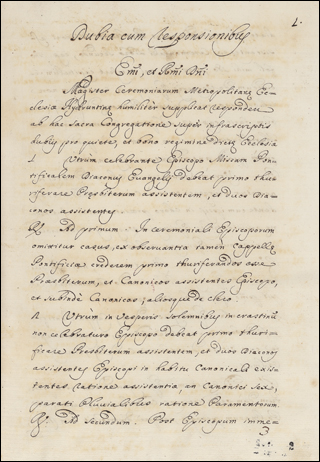 1.
Dubia cum Responsionibus
Emi, et Rmi Dni
Magister Ceremoniarum Metropolitanę Ec-
clesię Hydruntinę humiliter supplicat responderi
ab hac Sacra Congregatione super infrascriptis
dubijs pro quiete, et bono regimine dictę Ecclesię
1 Utrum celebrante Episcopo Missam Pon-
tificalem Diaconus Evangelij debeat primo thu-
rificare Presbiterum assistentem, et duos Dia-
conos assistentes.
R. Ad primum. In ceremoniali Episcoporum
omittitur casus, ex observantia tamen Cappellę
Pontificię crederem primo thurificandos esse
Presbiterum, et Canonicos assistentes Episcopo,
et subinde Canonicos; aliosque de clero.
2 Utrum in Vesperis solemnibus in crastinũ
non celebraturo Episcopo debeat primo thuri-
ficare Presbiterum assistentem, et duos Diaconos
assistentes Episcopi in habitu Canonicali exis-
tentes ratione assistentię, an Canonici sex,
parati Pluvialibus ratione Paramentorum
R. Ad secundum. Post Episcopum imme-